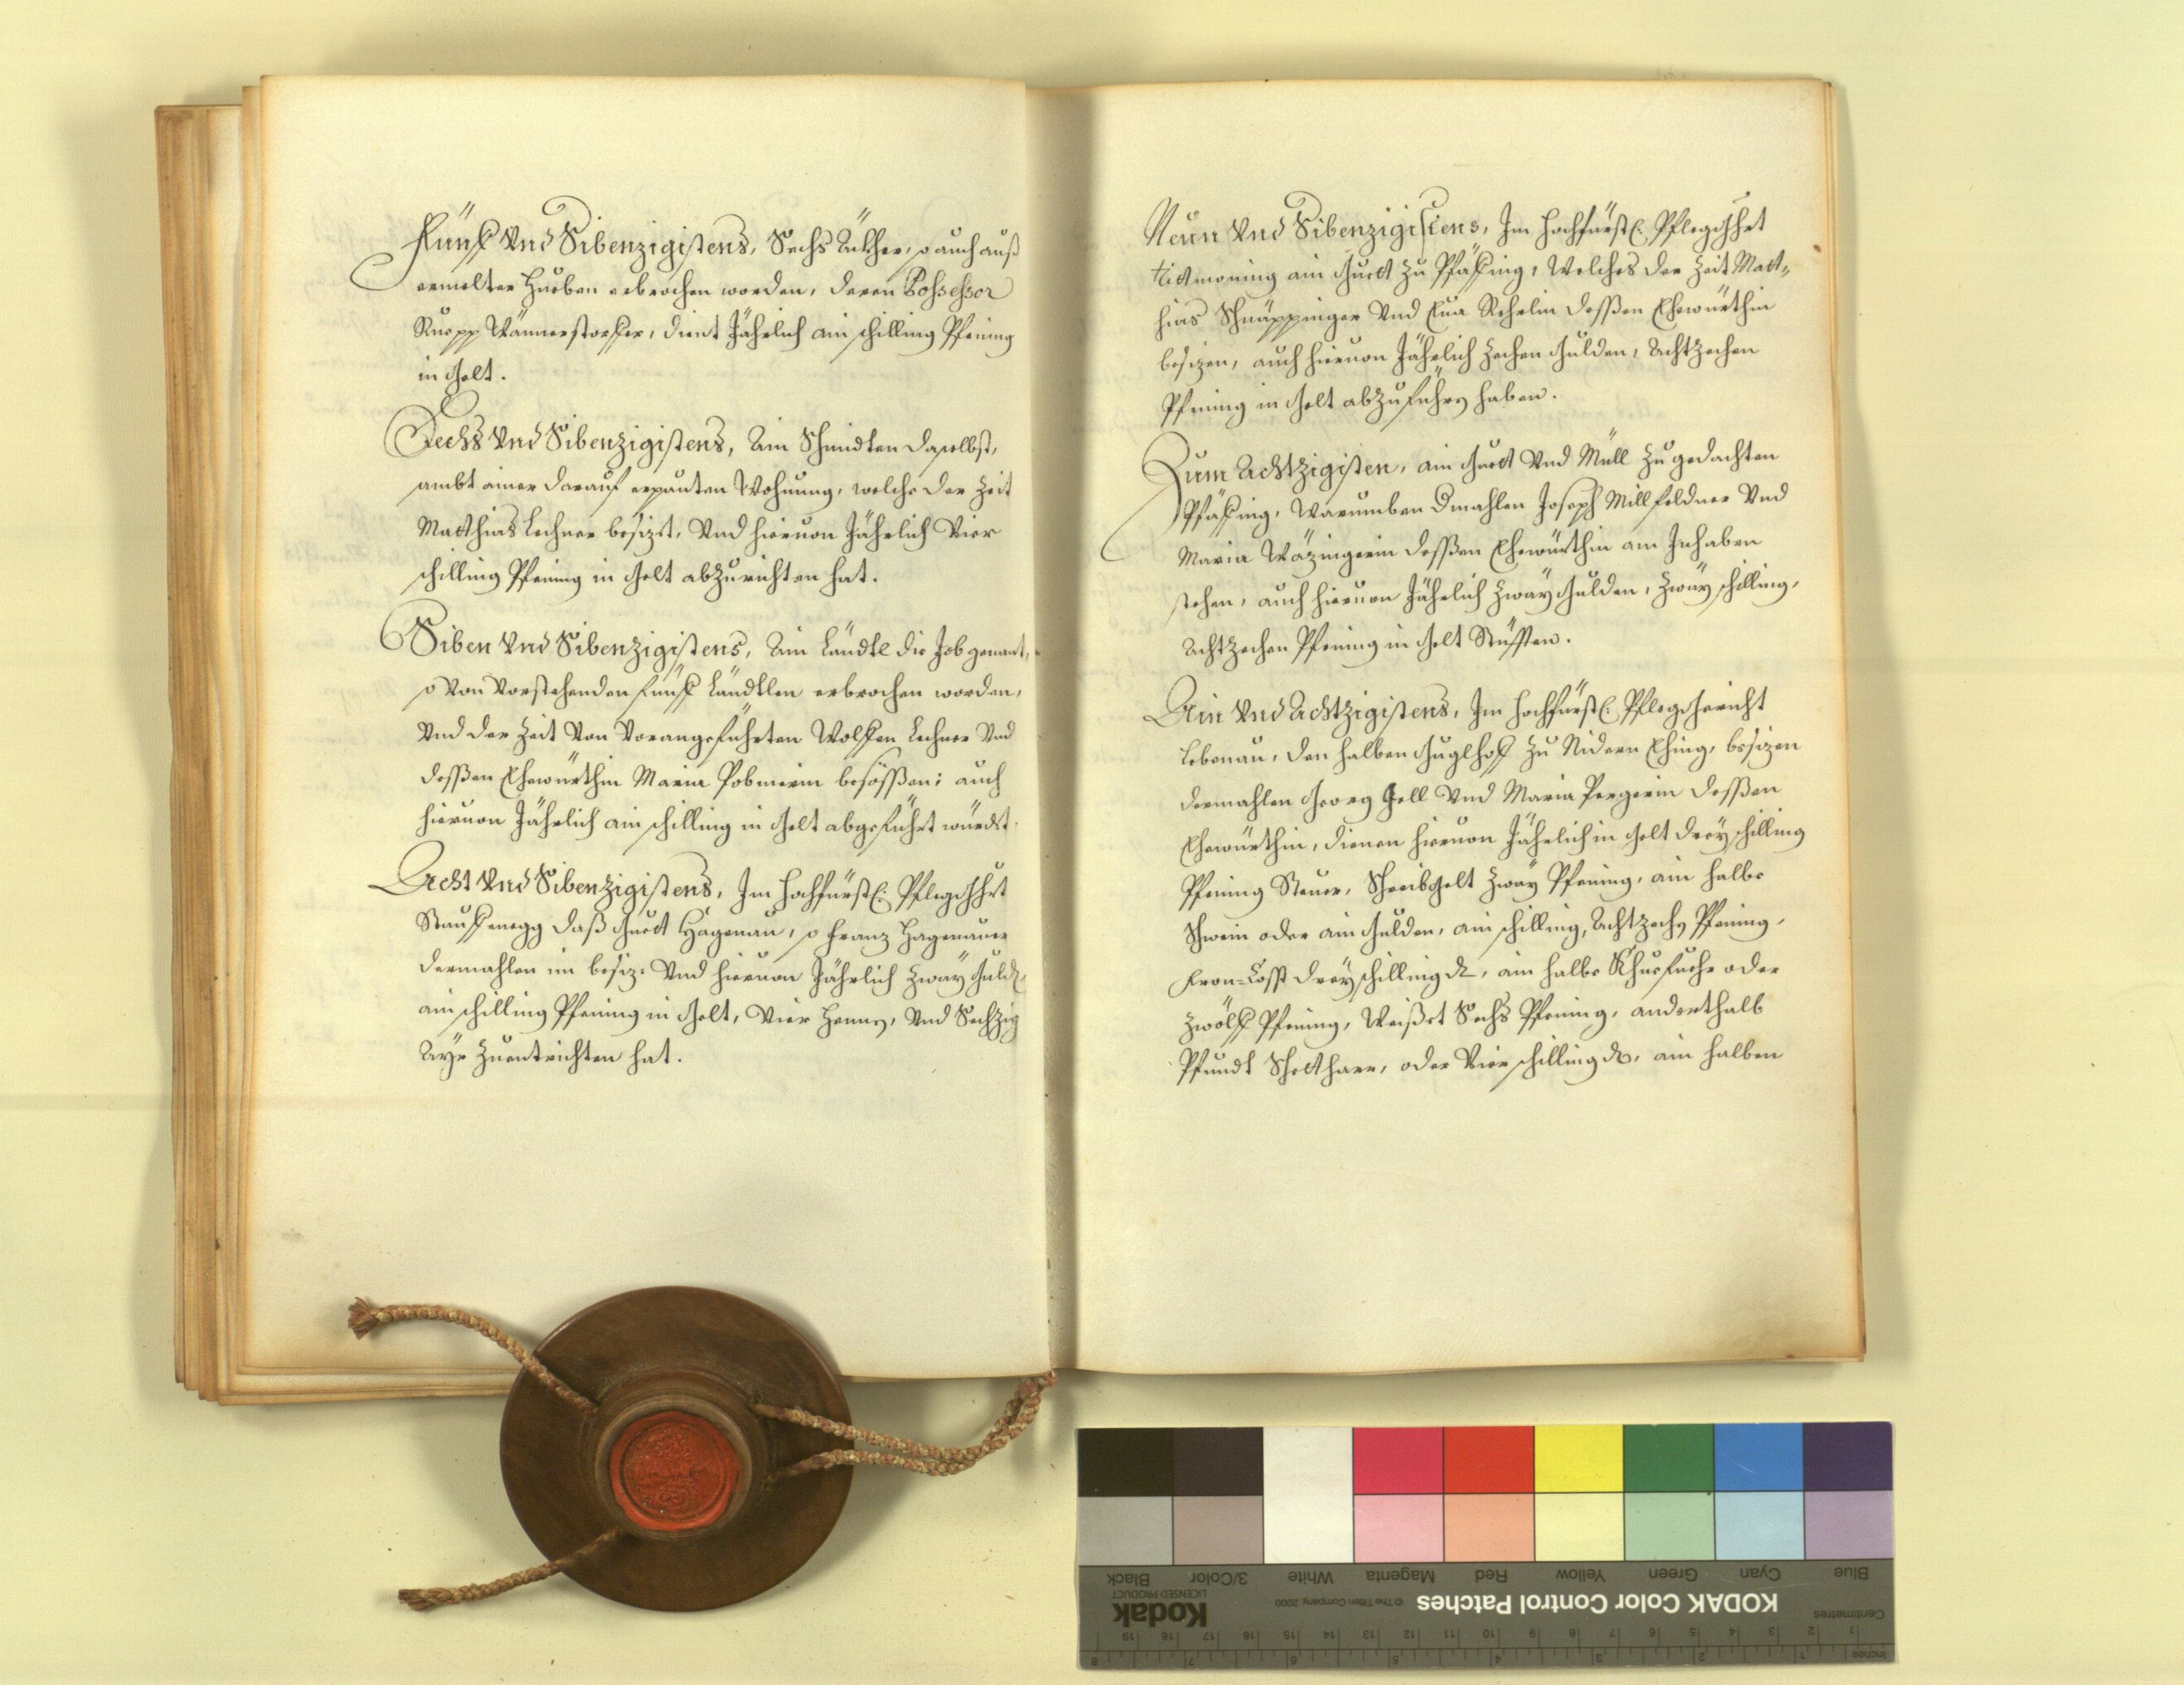 Fünf Vnd Sibenzigistens, Sechs Äckher, so auch auß
ermelter Hueben erbrochen worden, deren Possessor
Ruepp Wimmerstorffer, dient Jährlich ain schilling Pfening
in Gelt.
Sechs Vnd Sibenzigistens, Ain Schmidten daselbst,
sambt ainer darauf erpauten Wohnung, welche der Zeit
Matthias Lechner besizet, Vnd hieruon Jährlich Vier
schilling Pfening in Gelt abzurichten hat.
Siben Vnd Sibenzigistens, Ain Ländtl die Job genant,
so Von Vorstehenden fünf Ländtlen erbrochen worden,
Vnd der Zeit Von Vorangeführten Wolfen Lechner Vnd
dessen Ehewürthin Maria Pobmerin besössen; auch
hieruon Jährlich ain schilling in Gelt abgeführt würdet.
Acht Vnd Sibenzigistens, Im Hochfürstl: Pfleggghrt
Stauffenegg daß Guett Hagenau, so Franz Hagenauer
dermahlen im besiz: Vnd hieruon Jährlich Zway Guld:
ain schilling Pfening in Gelt, Vier Hennen, Vnd Sechzig
Ayr Zuentrichten hat.
Neun Vnd Sibenzigistens, Im Hochfürstl: Pfleggghrt
Tittmoning ain Guett Zu Pfäffing, Welches der Zeit Matt-
hias Schnäppinger Vnd Eua Rehrlin dessen Ehewürthin
besizen, auch hieruon Jährlich Zechen Gulden, Achtzechen
Pfening in Gelt abzuführen haben.
Zum Achtzigisten, ain Guett Vnd Müll Zu gedachten
Pfäffing, Warumben dermahlen Joseph Millfeldner Vnd
Maria Wäzingerin dessen Ehewürthin am Inhaben
stehen, auch hieruon Jährlich Zway Gulden, Zway schilling,
Achtzechen Pfening in Gelt Stüfften.
Ain Vnd Achtzigistens, Im Hochfürstl: Pfleggericht
Lebenau, den halben Guglhof Zu Nidern Eching, besizen
dermahlen Georg Gell Vnd Maria Pergerin dessen
Ehewürthin, dienen hieruon Jährlich in Gelt drey schilling
Pfening Steuer, Schreibgelt Zway Pfening, ain halbs
Schwein oder ain Gulden, ain schilling, Achtzechen Pfening,
Fron-Cosst drey schilling d, ain halbe Khuefuehr oder
Zwölf Pfening, Weisset Sechs Pfening, anderthalb
Pfundt Schetthaar, oder Vier schilling d, ain halben
KODAK Color Control Patches
© The Tiffen Company, 2000
Kodak
LICENSED PRODUCT
Blue Cyan Green Yellow Red Magenta White 3/Color Black
Centimetres
Inches